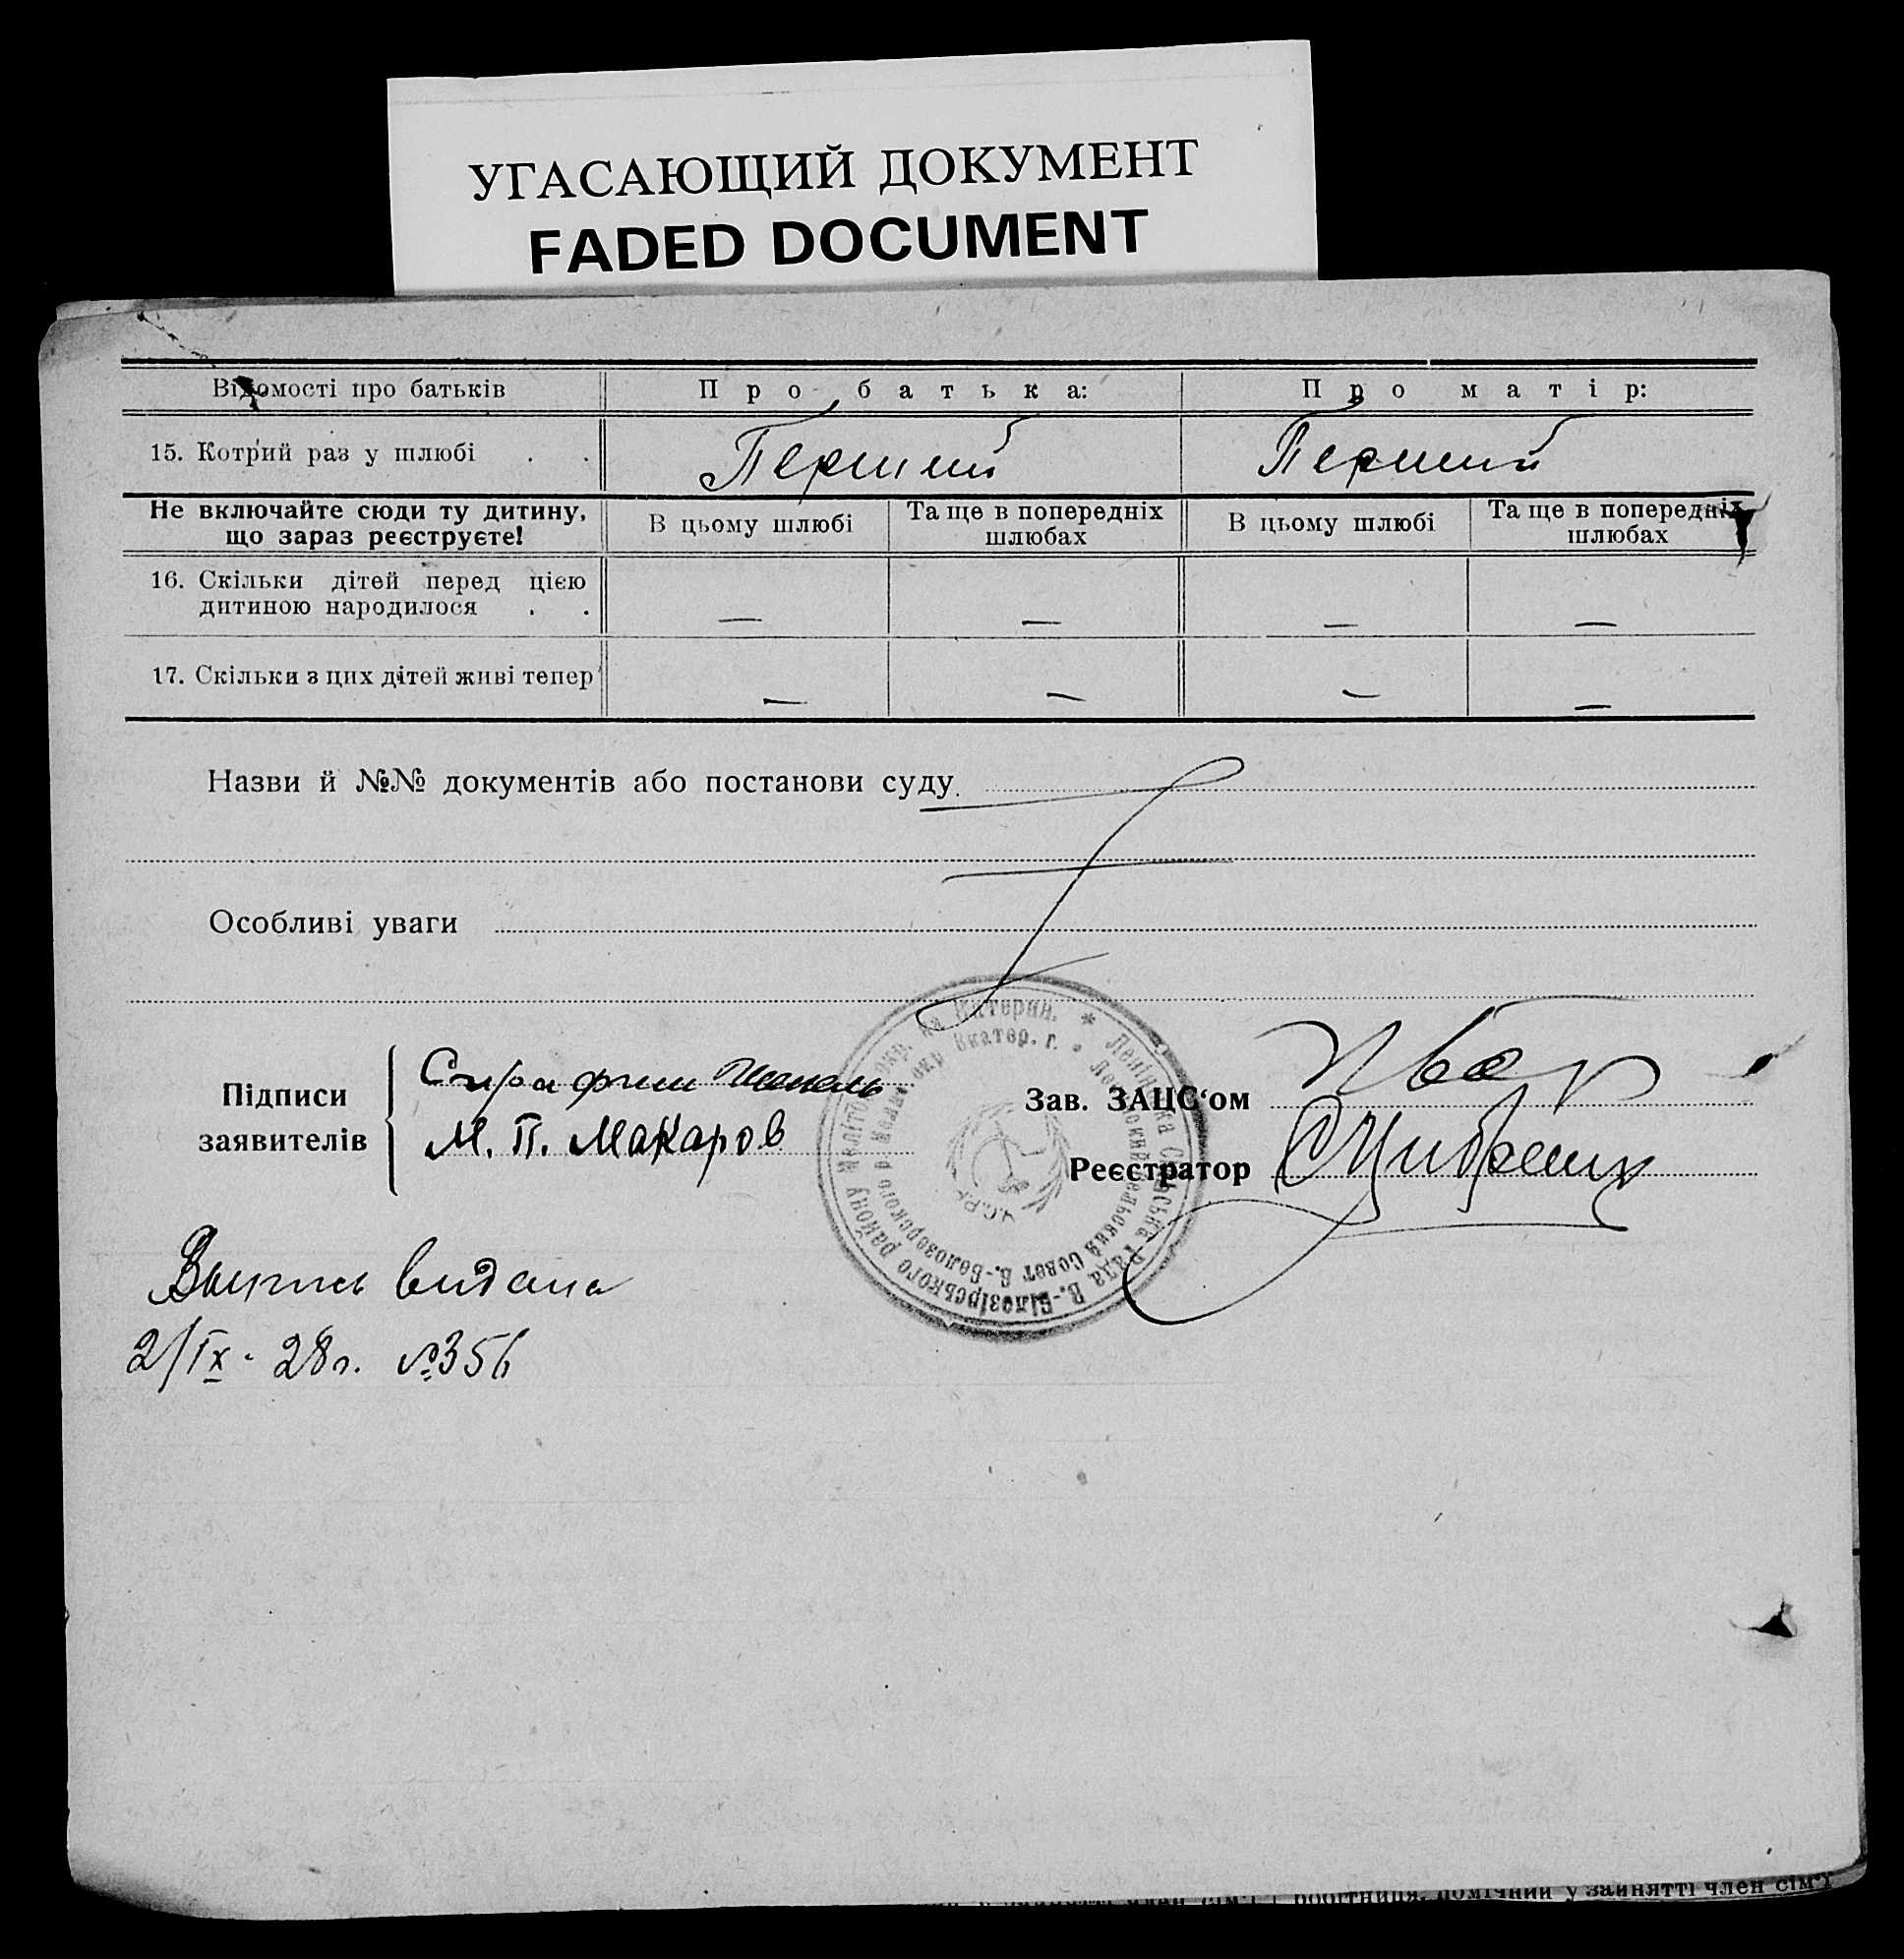 УГАСАЮЩИЙ ДОКУМЕНТ
FADED DOCUMENT
Відомості про батьків
Про батька:
Про матір:
15. Котрий раз у шлюбі . .
Перший
Перший
Не включайте сюди ту дитину,
що зараз реєструєте!
В цьому шлюбі
Та ще в попередніх
шлюбах
В цьому шлюбі
Та ще в попередніх
шлюбах
16. Скільки дітей перед цією
дитиною народилося . .
— — — —
17. Скільки з цих дітей живі тепер
— — — —
Назви й №№ документів або постанови суду.
Особливі уваги
Підписи
заявителів
М. П. Макаров
Зав. ЗАЦС‘ом
Реєстратор
Ленінська Сільська Рада В.-Білозірського району Мелітоп. окр. на Катерин. *
Ленинский Сельский Совет В.-Белозерского р. Мелитоп. окр. Екатер. г. *
У.С.Р.Р.
Выпись видана
2/IX - 28 г. №356